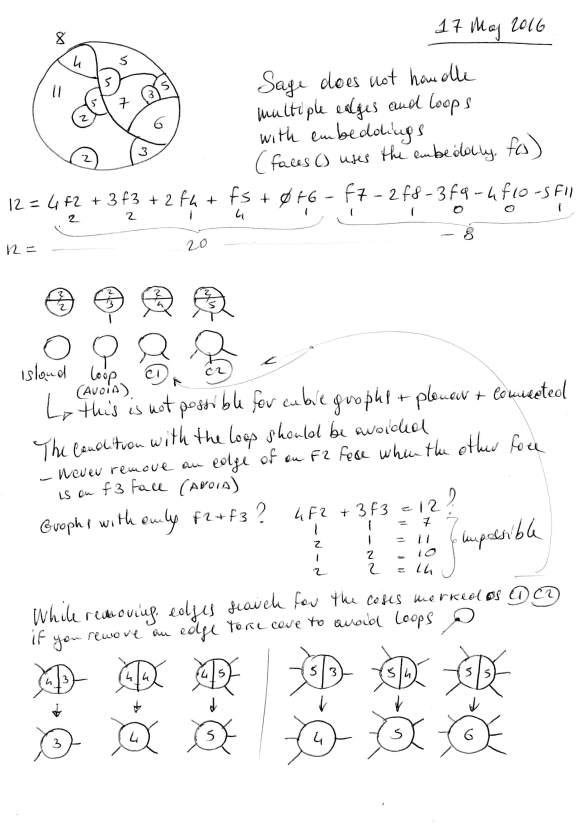 17 May 2016
8
4
5
5
5
11
5
7
3
2
6
2
3
Sage does not handle
multiple edges and loops
with embeddings
(faces() uses the embedding fcs)
12 = 4f2 + 3f3 + 2f4 + f5 + 0f6 - f7 - 2f8 - 3f9 - 4f10 - 5f11
2 2 1 4 1 1 1 0 0 1
12 = 20 - 8
2/2 2/3 2/4 2/5
island loop (AVOID) C1 C2
↳ this is not possible for cubic graphs + planar + connected
The condition with the loop should be avoided
- Never remove an edge of an F2 face when the other face
is an f3 face (AVOID)
Graphs with only f2+f3? 4f2 + 3f3 = 12?
1 1 = 7
2 1 = 11
1 2 = 10
2 2 = 14
impossible
While removing edges search for the cases marked as C1 C2
if you remove an edge take care to avoid loops
4 3 4 4 4 5 5 3 5 4 5 5
3 4 5 4 5 6